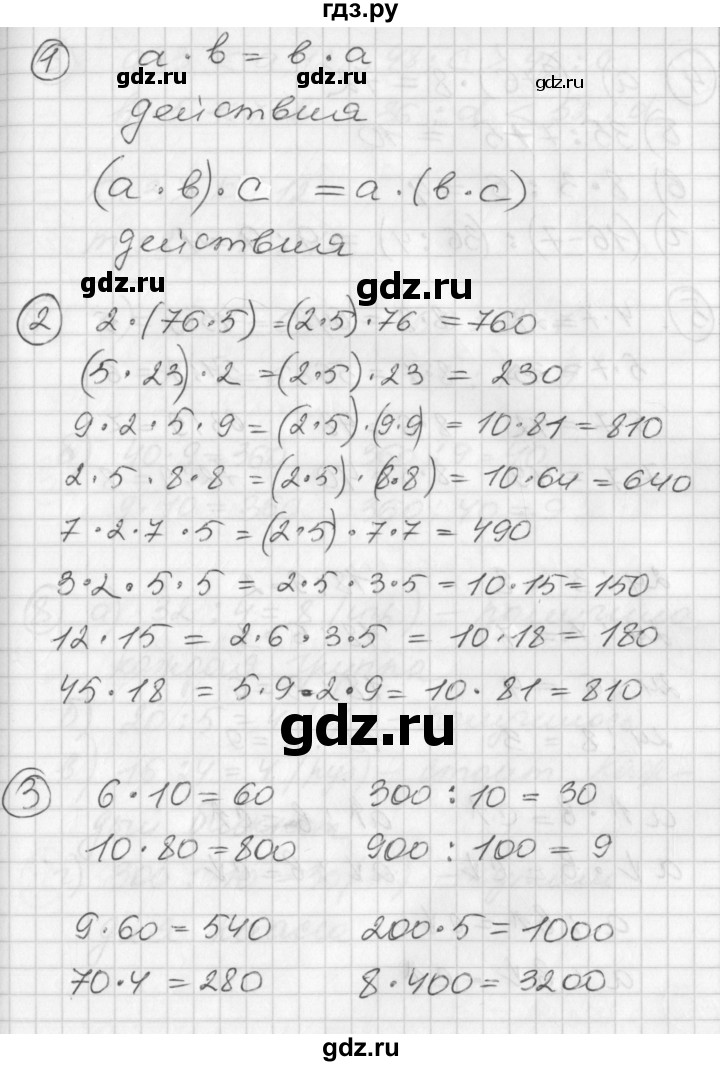 гдз.ру
1 а · в = в · а
gdz.ru gdz.ru gdz.ru
действия
(а · в) · с = а · (в · с)
действия
gdz.ru gdz.ru
2 2 · (76 · 5) = (2 · 5) · 76 = 760
(5 · 23) · 2 = (2 · 5) · 23 = 230
9 · 2 · 5 · 9 = (2 · 5) · (9 · 9) = 10 · 81 = 810
2 · 5 · 8 · 8 = (2 · 5) · (8 · 8) = 10 · 64 = 640
7 · 2 · 7 · 5 = (2 · 5) · 7 · 7 = 490
3 · 2 · 5 · 5 = 2 · 5 · 3 · 5 = 10 · 15 = 150
12 · 15 = 2 · 6 · 3 · 5 = 10 · 18 = 180
45 · 18 = 5 · 9 · 2 · 9 = 10 · 81 = 810
gdz.ru
3 6 · 10 = 60 300 : 10 = 30
10 · 80 = 800 900 : 100 = 9
9 · 60 = 540 200 · 5 = 1000
70 · 4 = 280 8 · 400 = 3200
gdz.ru